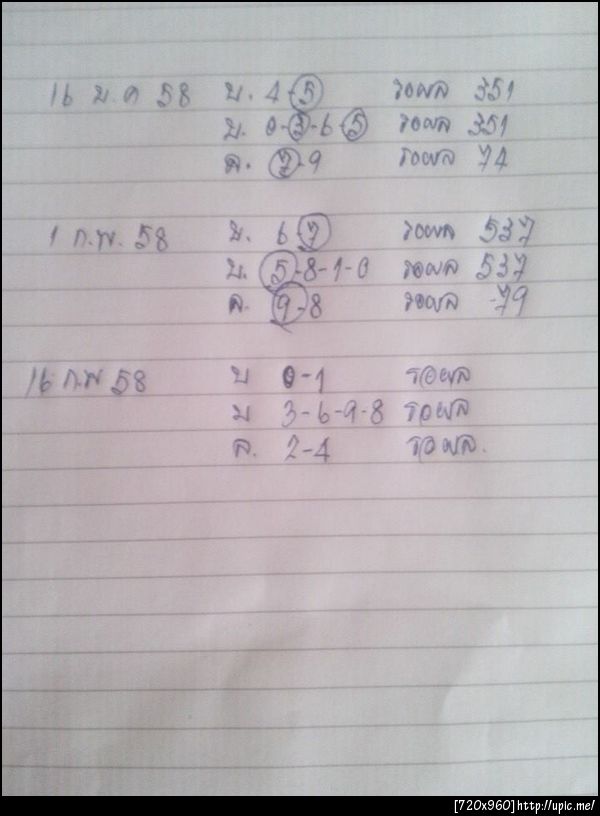 16 ม.ค 58 บ. 4-5 รอผล 351
บ. 0-3-6-5 รอผล 351
ล. 7-9 รอผล 74
1 ก.พ. 58 บ. 6-7 รอผล 537
บ. 5-8-1-0 รอผล 537
ล. 9-8 รอผล 79
16 ก.พ 58 บ 0-1 รอผล
บ 3-6-9-8 รอผล
ล. 2-4 รอผล.
[720x960]http://upic.me/